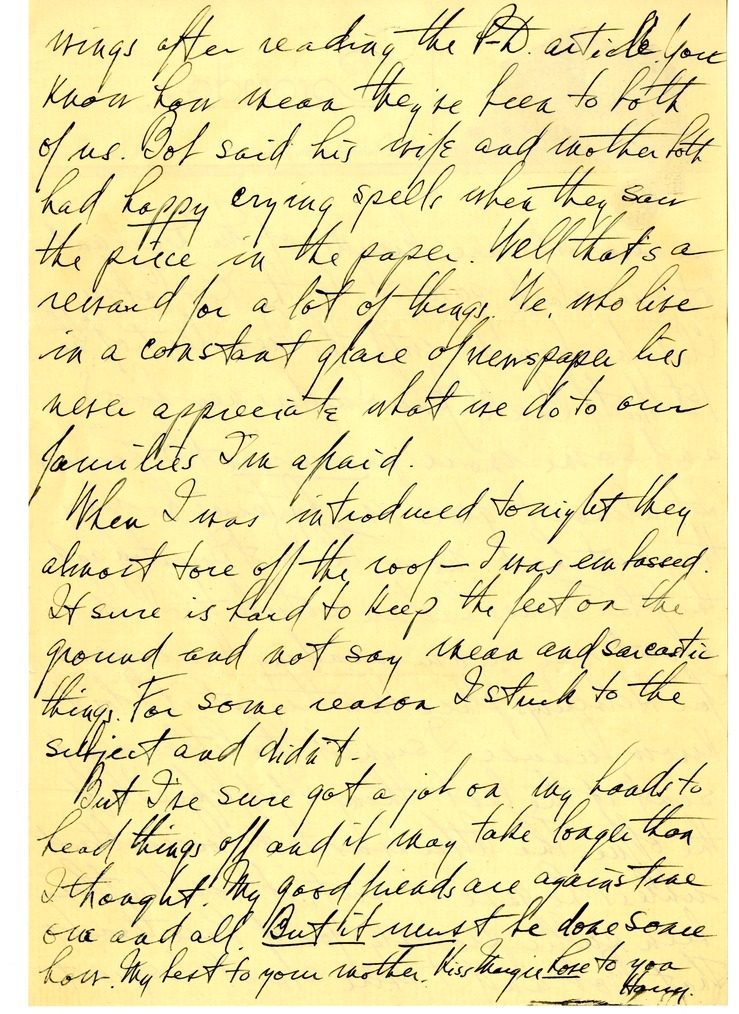 wings after reading the P-D. article. You
know how mean they've been to both
of us. Bob said his wife and mother both
had happy crying spells when they saw
the piece in the paper. Well that's a
reward for a lot of things. We, who live
in a constant glare of newspaper lies
never appreciate what we do to our
families I'm afraid.
When I was introduced tonight they
almost tore off the roof – I was embassed.
It sure is hard to keep the feet on the
ground and not say mean and sarcastic
things. For some reason I stuck to the
subject and didn't.
But I've sure got a job on my hands to
head things off and it may take longer than
I thought. My good friends are against me
one and all. But it must be done some
how. My best to your mother, Kiss Margie love to you
Harry.